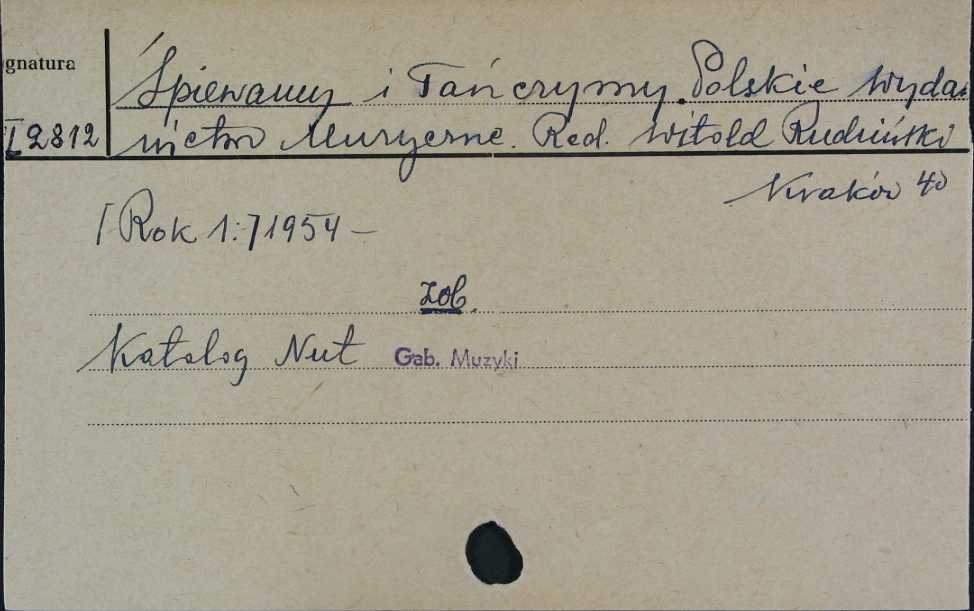 gnatura
Śpiewamy i Tańczymy. Polskie Wyda-
I 2812 nictwo Muzyczne. Red. Witold Rudziński
Kraków 4°
[Rok 1:] 1954 –
zob.
Katalog Nut Gab. Muzyki